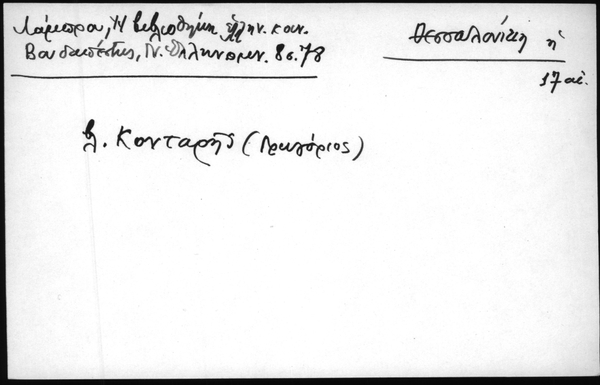 Λάμπρου, Ἡ βιβλιοθήκη ἑλλην. κοιν.
Βουδαπέστης, Ν. Ἑλληνομν. 8 σ. 78
Θεσσαλονίκη ἡ
17 αἰ.
βλ. Κονταρῆς (Γρηγόριος)